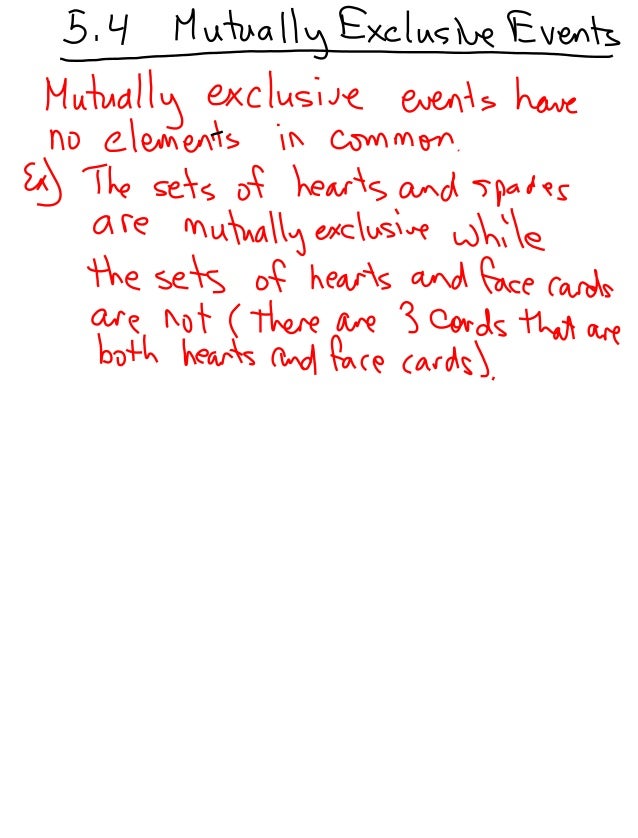 5.4 Mutually Exclusive Events
Mutually exclusive events have
no elements in common.
Ex) The sets of hearts and spades
are mutually exclusive while
the sets of hearts and face cards
are not (there are 3 cards that are
both hearts and face cards).